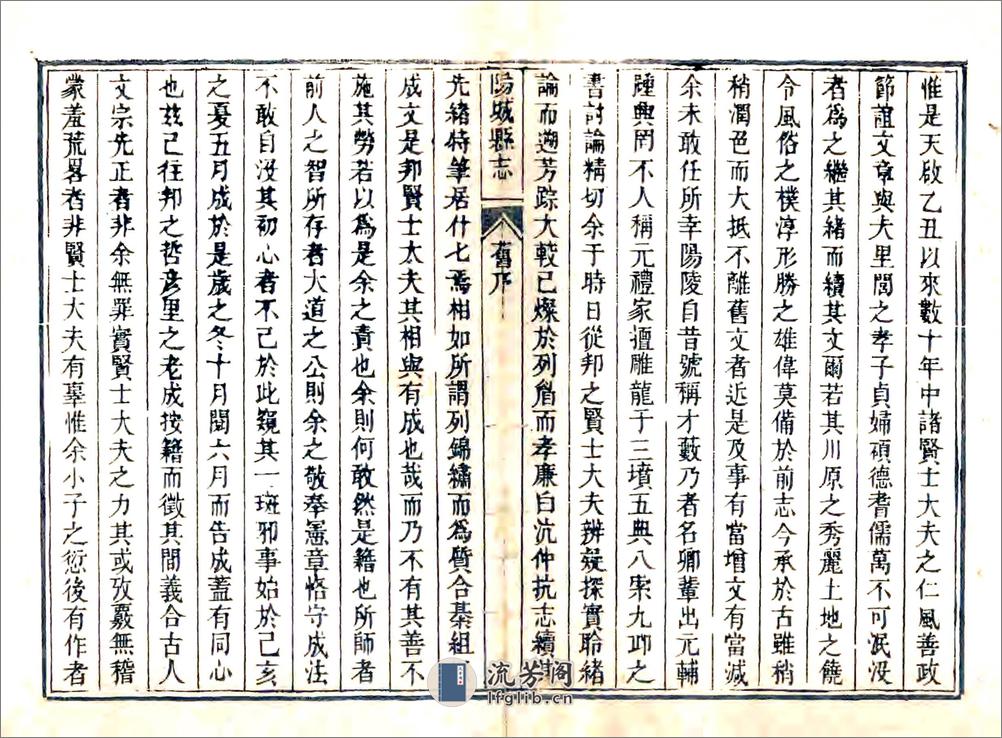 惟是天啟乙丑以來數十年中諸賢士大夫之仁風善政
節誼文章與夫里閭之孝子貞婦碩德耆儒萬不可泯没
者爲之繼其緒而續其文爾若其川原之秀麗土地之饒
令風俗之樸淳形勝之雄偉莫備於前志今承於古雖稍
稍潤色而大抵不離舊文者近是及事有當增文有當減
余未敢任所幸陽陵自昔號稱才藪乃者名卿輩出元輔
踵興罔不人稱元禮家擅雕龍于三墳五典八索九邱之
書討論精切余于時日從邦之賢士大夫辨疑探實聆緒
論而遡芳踪大較已燦於列眉而孝廉白沆仲抗志續
陽城縣志
舊序
先緒特筆居什七焉相如所謂列錦繡而爲質合綦組
成文是邦賢士太夫其相與有成也哉而乃不有其善不
施其勞若以爲是余之責也余則何敢然是籍也所師者
前人之智所存者大道之公則余之敬奉憲章恪守成法
不敢自没其初心者不已於此窺其一斑邪事始於己亥
之夏五月成於是歲之冬十月閱六月而告成蓋有同心
也茲已往邦之哲彦里之老成按籍而徵其間義合古人
文宗先正者非余無罪實賢士大夫之力其或攷覈無稽
蒙羞荒畧者非賢士大夫有辜惟余小子之愆後有作者
流芳閣
lfglib.cn